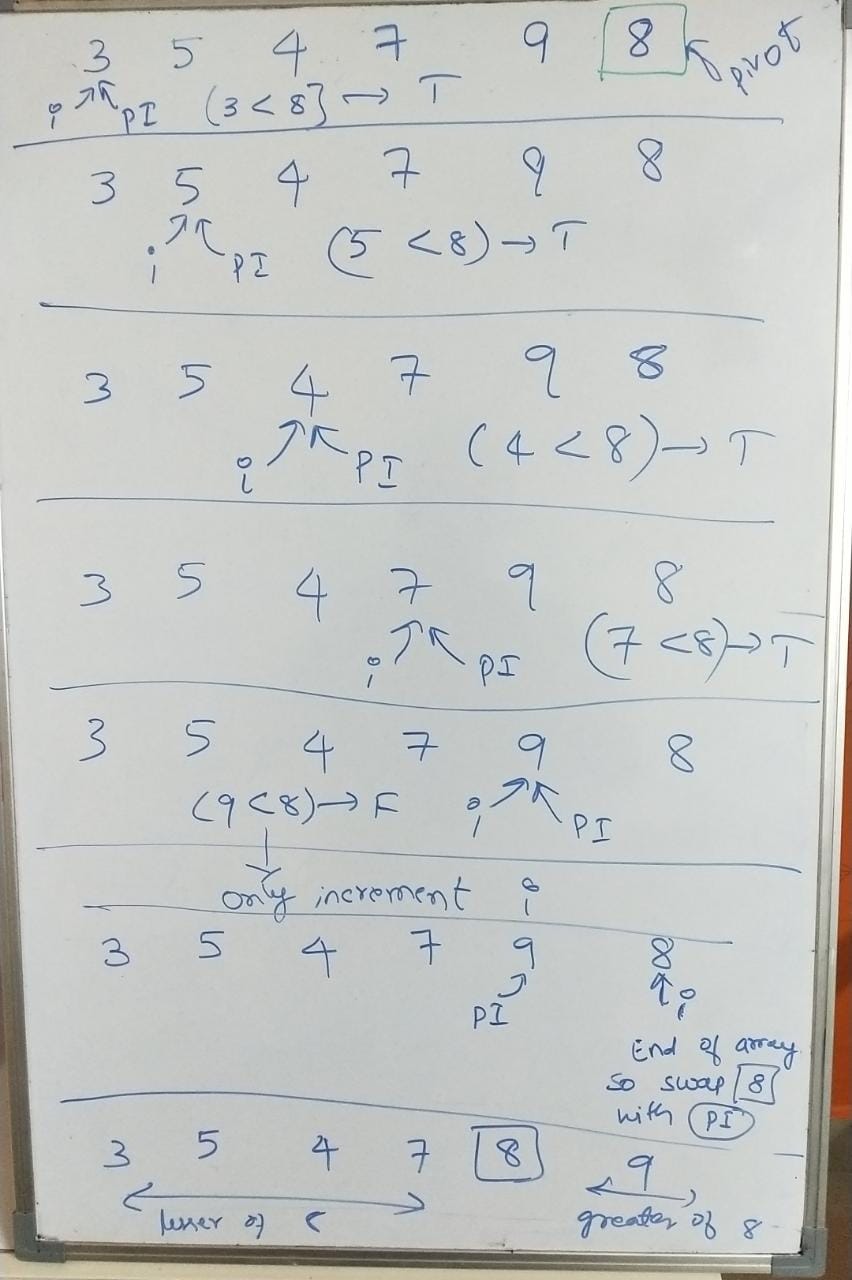 3 5 4 7 9 8 pivot
i PI (3 < 8] → T
3 5 4 7 9 8
i PI (5 < 8) → T
3 5 4 7 9 8
i PI (4 < 8) → T
3 5 4 7 9 8
i PI (7 < 8) → T
3 5 4 7 9 8
(9 < 8) → F i PI
only increment i
3 5 4 7 9 8
PI i
End of array
so swap 8
with PI
3 5 4 7 8 9
lesser of 8 greater of 8